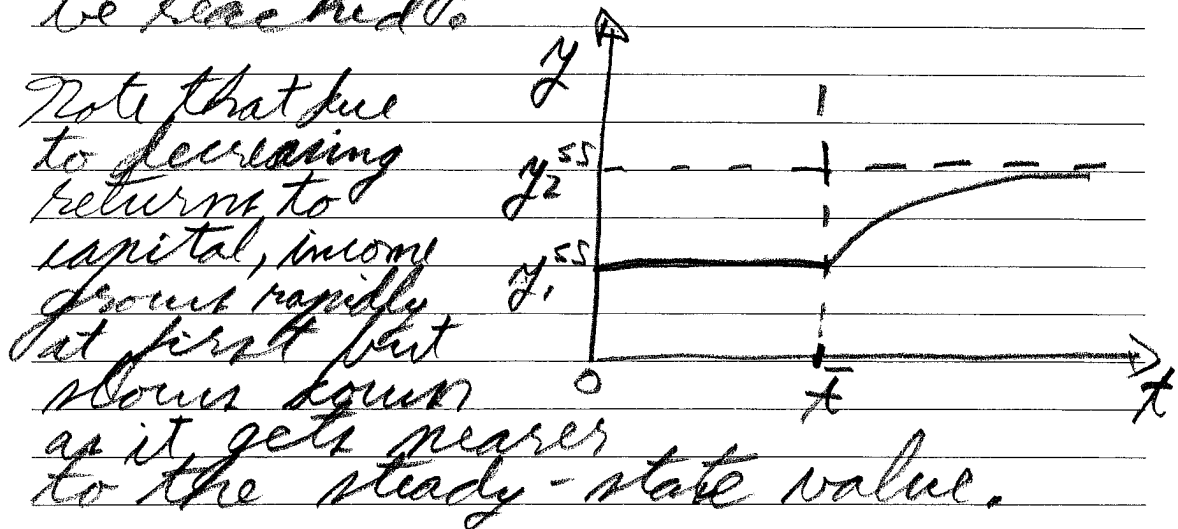 be reached.
y
Note that due
to decreasing
returns to
capital, income
grows rapidly
at first but
slows down
as it gets nearer
to the steady-state value.
y₂ˢˢ
y₁ˢˢ
0
t̄
t